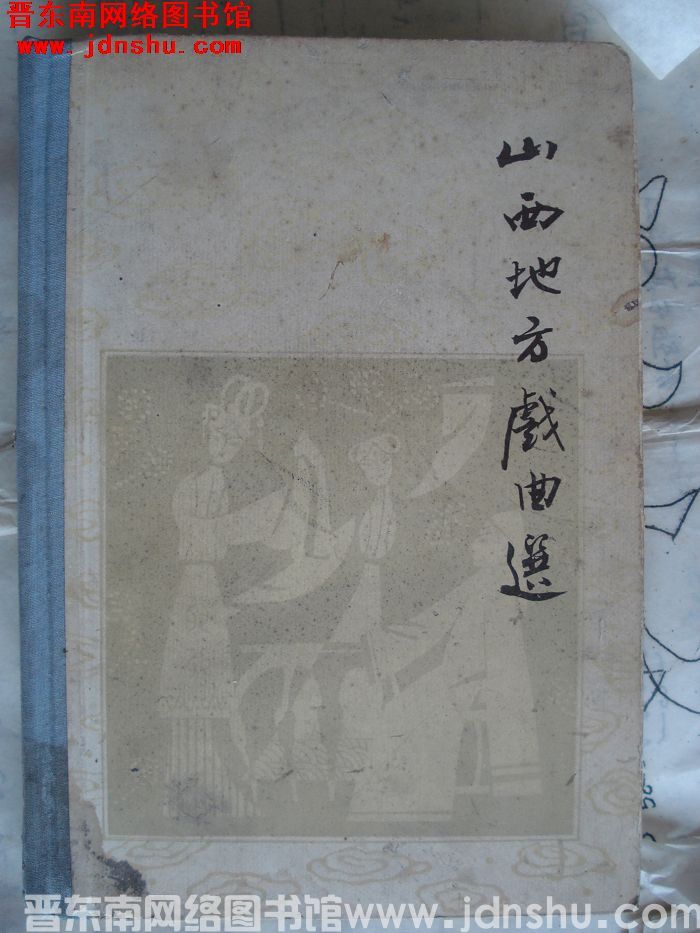 晋东南网络图书馆
www.jdnshu.com
山西地方戲曲選
晋东南网络图书馆www.jdnshu.com